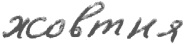 жовтня